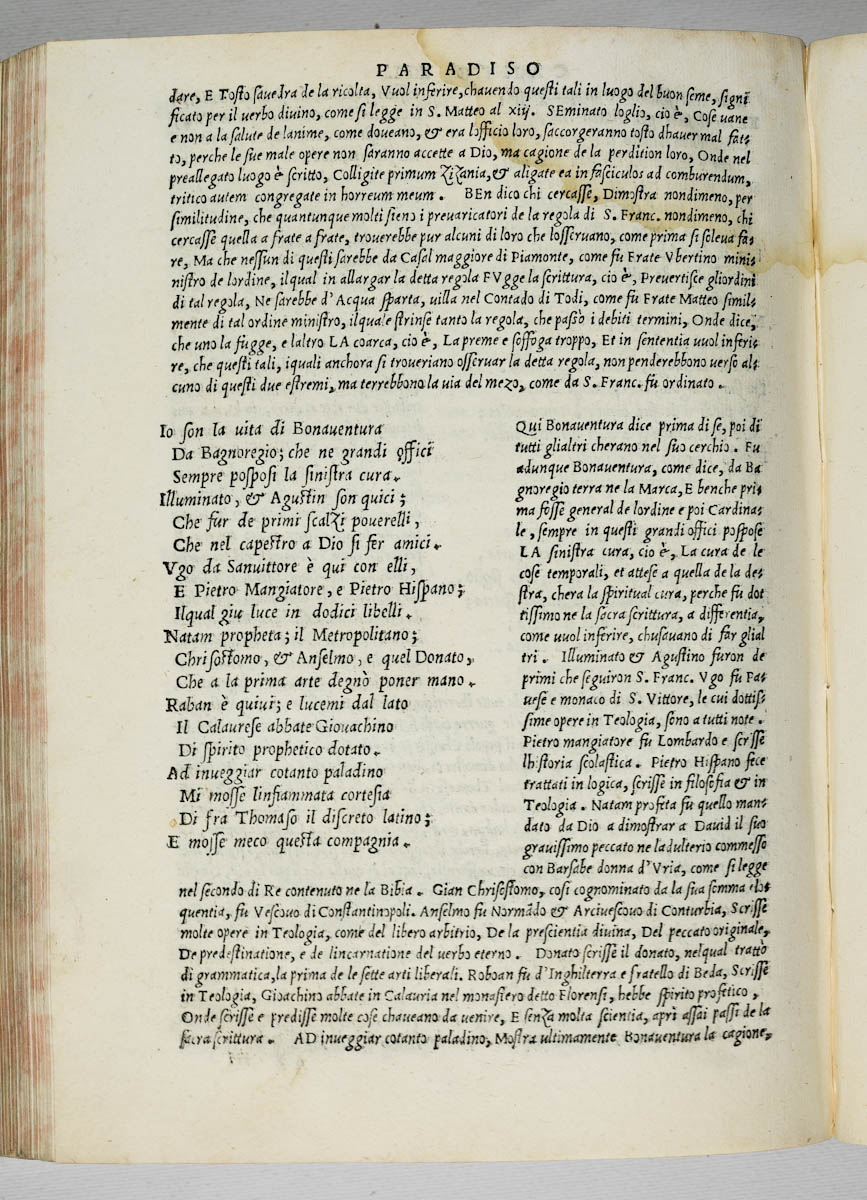 PARADISO
dare, E Tosto sauedra de la ricolta, Vuol inferire, chauendo questi tali in luogo del buon seme, signi
ficato per il uerbo diuino, come si legge in S. Matteo al xiij. SEminato loglio, cio è, Cose uane
e non a la salute de lanime, come doueano, & era lofficio loro, saccorgeranno tosto dhauer mal fat-
to, perche le sue male opere non saranno accette a Dio, ma cagione de la perdition loro, Onde nel
preallegato luogo è scritto, Colligite primum Zizania, & aligate ea in fasciculos ad comburendum,
tritico autem congregate in horreum meum. BEn dico chi cercasse, Dimostra nondimeno, per
similitudine, che quantunque molti sieno i preuaricatori de la regola di S. Franc. nondimeno, chi
cercasse quella a frate a frate, trouerebbe pur alcuni di loro che losseruano, come prima si soleua fa-
re, Ma che nessun di questi sarebbe da Casal maggiore di Piamonte, come fu Frate Vbertino mini-
nistro de lordine, il qual in allargar la detta regola FVgge la scrittura, cio è, Preuertisce gliordini
di tal regola, Ne sarebbe d'Acqua sparta, uilla nel Contado di Todi, come fu Frate Matteo simil-
mente di tal ordine ministro, ilquale strinse tanto la regola, che passò i debiti termini, Onde dice,
che uno la fugge, e laltro LA coarca, cio è, La preme e soffoga troppo, Et in sententia uuol inferi-
re, che questi tali, iquali anchora si troueriano osseruar la detta regola, non penderebbono uerso al-
cuno di questi due estremi, ma terrebbono la uia del mezo, come da S. Franc. fu ordinato.
Io son la uita di Bonauentura
Da Bagnoregio; che ne grandi officii
Sempre posposi la sinistra cura.
Illuminato, & Agustin son quici;
Che fur de primi scalzi pouerelli,
Che nel capestro a Dio si fer amici.
Vgo da Sanuittore è qui con elli,
E Pietro Mangiatore, e Pietro Hispano;
Ilqual giu luce in dodici libelli.
Natam propheta; il Metropolitano;
Chrisostomo, & Anselmo, e quel Donato,
Che a la prima arte degnò poner mano.
Raban è quiui; e lucemi dal lato
Il Calaurese abbate Giouachino
Di spirito prophetico dotato.
Ad inueggiar cotanto paladino
Mi mosse linfiammata cortesia
Di fra Thomaso il discreto latino;
E mosse meco questa compagnia.
QVi Bonauentura dice prima di se, poi di
tutti glialtri cherano nel suo cerchio. Fu
adunque Bonauentura, come dice, da Ba
gnoregio terra ne la Marca, E benche pri-
ma fosse general de lordine e poi Cardina-
le, sempre in questi grandi offici pospose
LA sinistra cura, cio è, La cura de le
cose temporali, et attese a quella de la de-
stra, chera la spiritual cura, perche fu dot
tissimo ne la sacra scrittura, a differentia,
come uuol inferire, chusauano di far glial
tri. Illuminato & Agustino furon de
primi che seguiron S. Franc. Vgo fu Pa-
uese e monaco di S. Vittore, le cui dottis-
sime opere in Teologia, sono a tutti note.
Pietro mangiatore fu Lombardo e scrisse
lhistoria scolastica. Pietro Hispano fece
trattati in logica, scrisse in filosofia & in
Teologia. Natam profeta fu quello man-
dato da Dio a dimostrar a Dauid il suo
grauissimo peccato ne ladulterio commesso
con Barsabe donna d'Vria, come si legge
nel secondo di Re contenuto ne la Bibia. Gian Chrisostomo, cosi cognominato da la sua somma elo-
quentia, fu Vescouo di Constantinopoli. Anselmo fu Normãdo & Arciuescouo di Conturbia, Scrisse
molte opere in Teologia, come del libero arbitrio, De la prescientia diuina, Del peccato originale,
De predestinatione, e de lincarnatione del uerbo eterno. Donato scrisse il donato, nelqual trattò
di grammatica, la prima de le sette arti liberali. Roboan fu d'Inghilterra e fratello di Beda, Scrisse
in Teologia, Gioachino abbate in Calauria nel monastero detto Florensi, hebbe spirito profetico,
Onde scrisse e predisse molte cose chaueano da uenire, E senza molta scientia, aprì assai passi de la
sacra scrittura. AD inueggiar cotanto paladino, Mostra ultimamente Bonauentura la cagione,